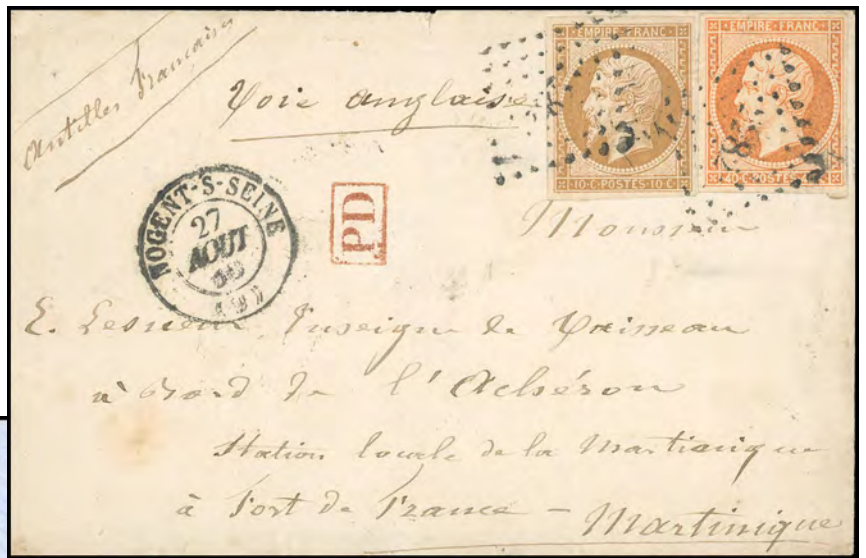 Antilles Françaises
Voie anglaise
EMPIRE FRANC
10 C. POSTES 10 C.
EMPIRE FRANC
40 C. POSTES 40 C.
NOGENT-S-SEINE
27
AOUT
(9)
PD
Monsieur
E. Lesueur Enseigne de Vaisseau
à Bord de l'Achéron
Station locale de la Martinique
à Fort de France - Martinique